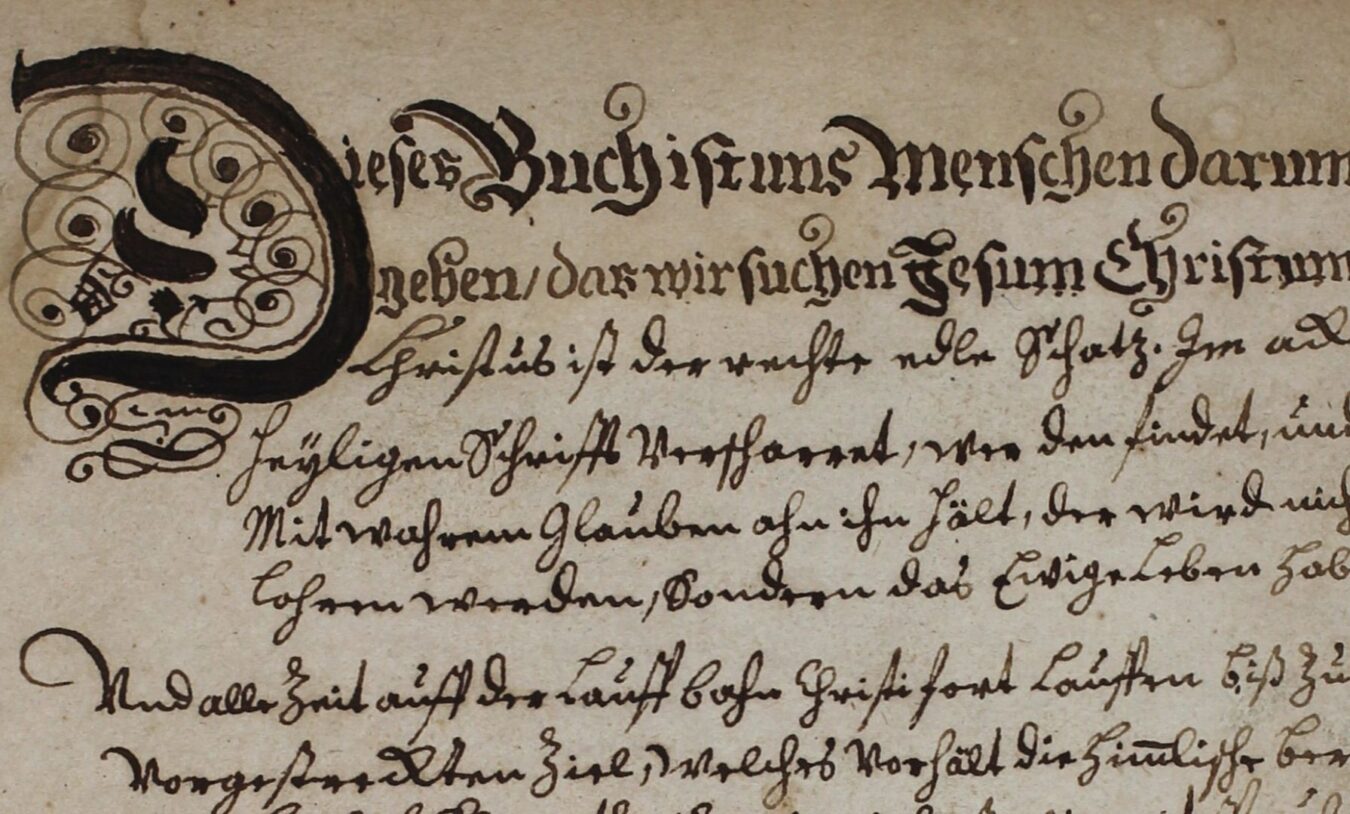 Dieses Buch ist uns Menschen darum
geben, das wir suchen Jesum Christum
Christus ist der rechte edle Schatz. Im ack
heyligen Schrifft Verscharret, wer den findet, und
Mit wahrem Glauben ahn ihn hält, der wird nich
lohren werden, Sondern das Ewige Leben hab
Und alle Zeit auff der Lauffbahn Christi fort Lauffen biß zu
Vorgestreckten Ziel, welches Vorhält die himlische ber